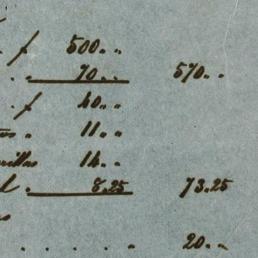 f 500..
. . 70.. 570..
. f 40..
11..
14..
8.25 73.25
. . . . . 20..